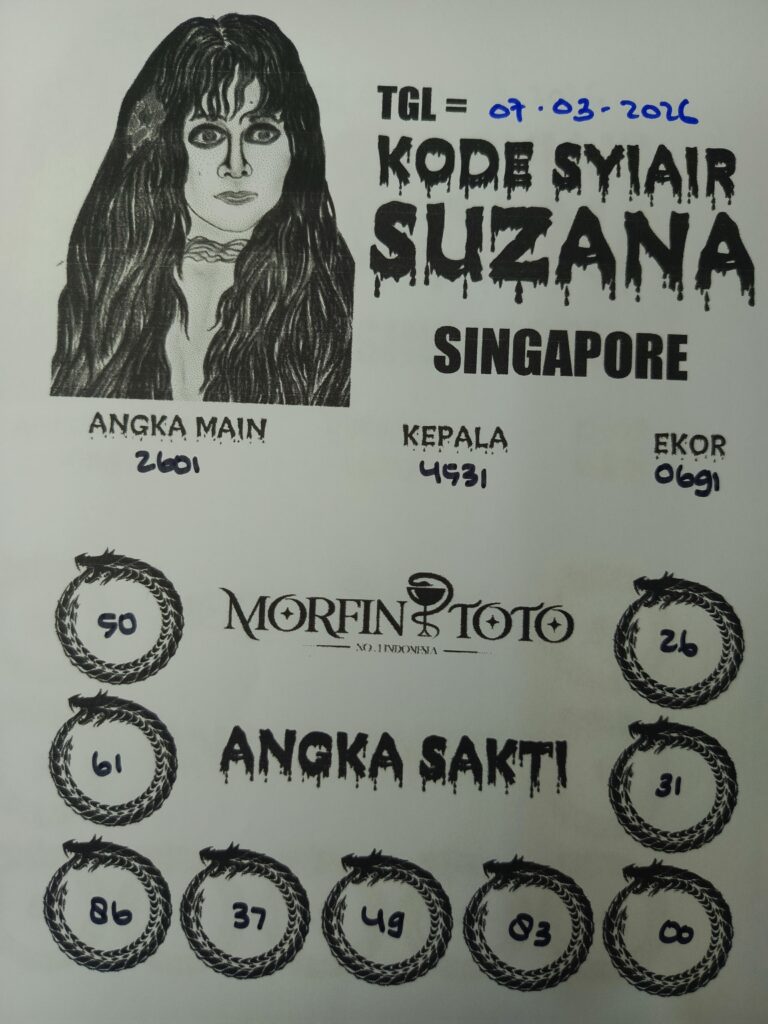 TGL = 07-03-2026
KODE SYIAIR
SUZANA
SINGAPORE
ANGKA MAIN KEPALA EKOR
2601 4931 0691
50 MORFIN TOTO 26
NO.1 INDONESIA
61 ANGKA SAKTI 31
86 37 49 03 00